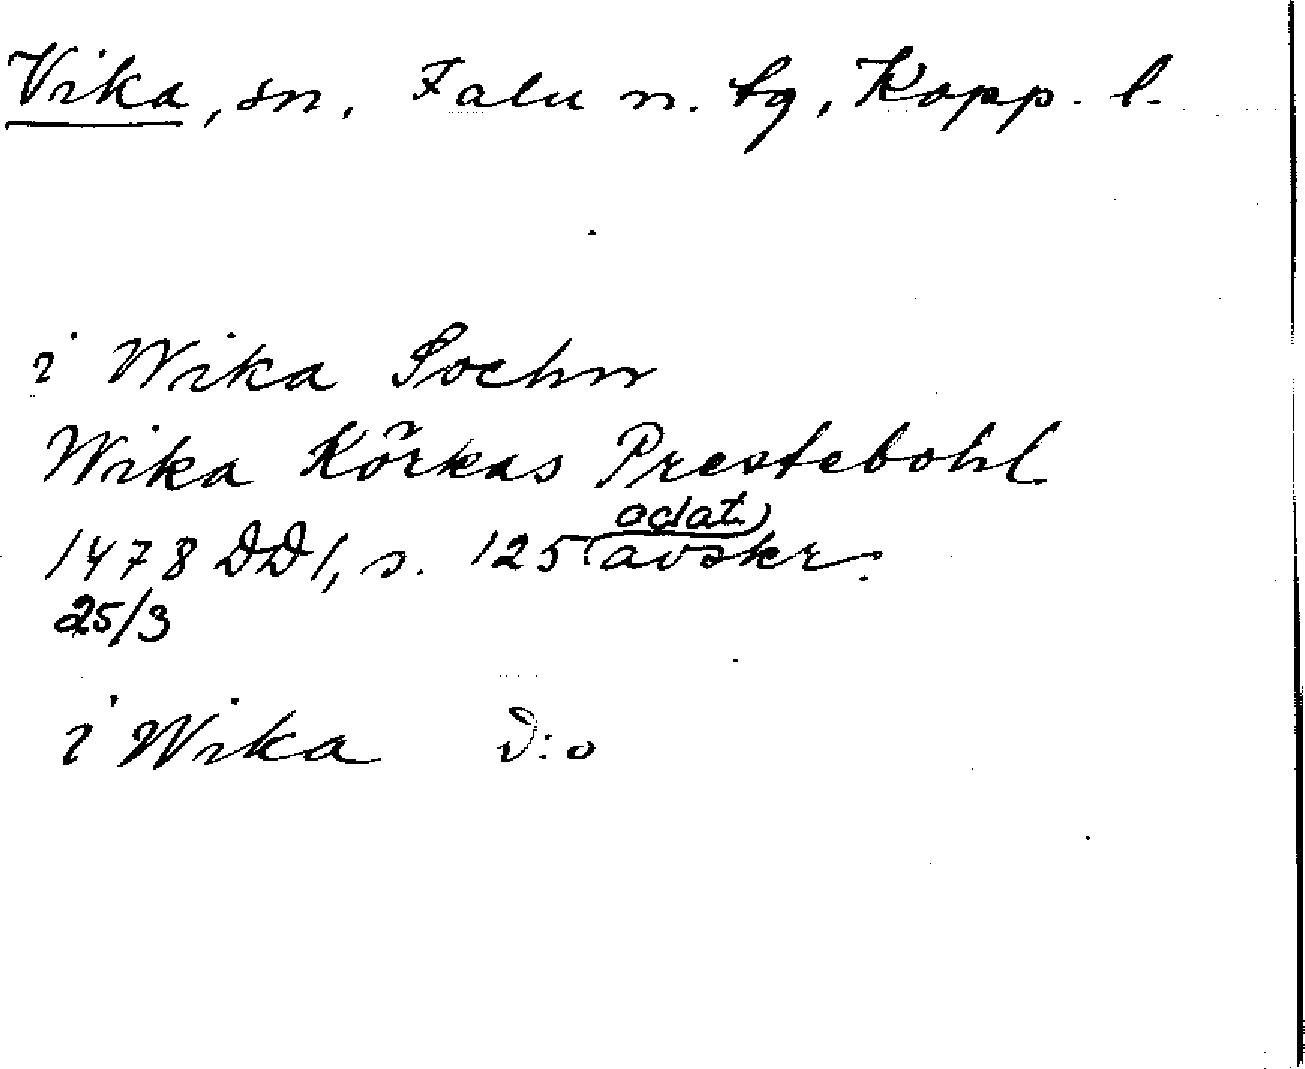 Vika, sn, Falu n. tg, Kopp. l.
i Wika Sochn
Wika Körkas Prestebohl
1478 DD1, s. 125 (odat. avskr.)
25/3
i Wika D:o